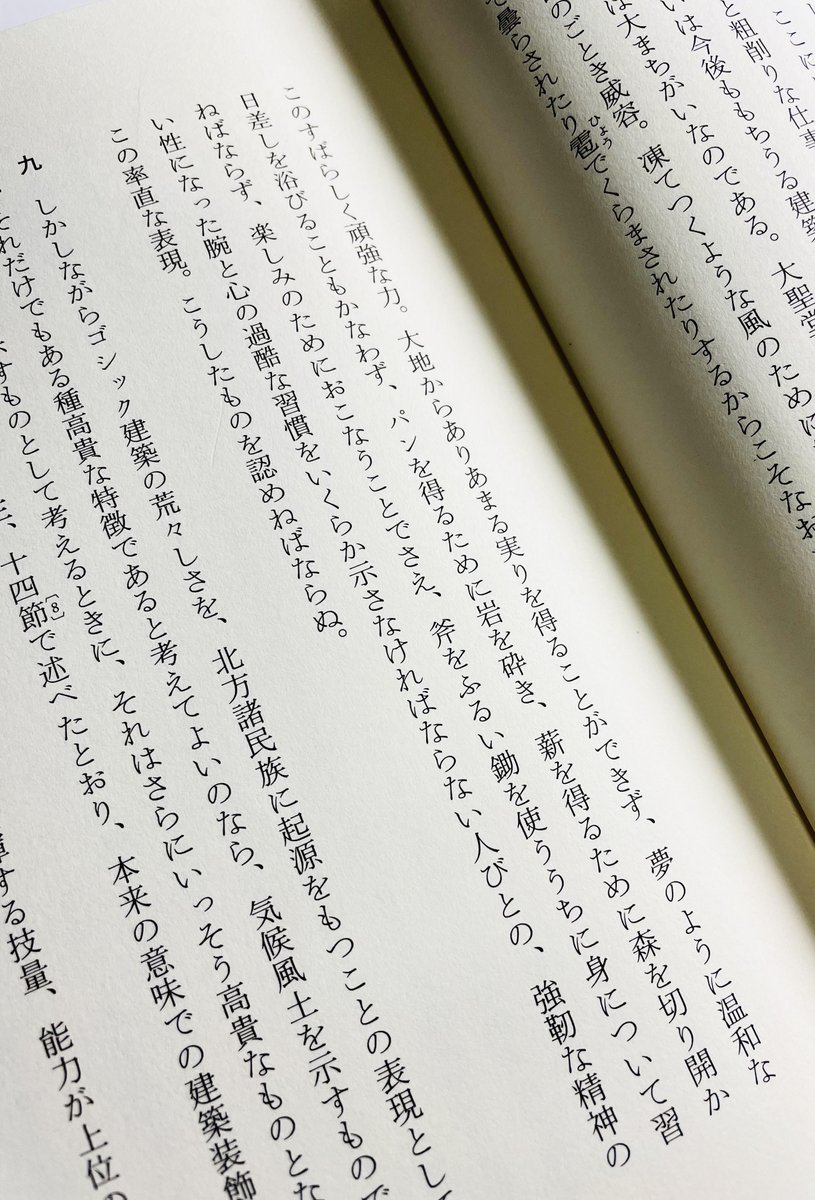 ここに
と粗削りな仕事
いは今後ももちうる建築
は大まちがいなのである。大聖堂
のごとき威容。凍てつくような風のために
で曇らされたり雹ひょうでくらまされたりするからこそなお
このすばらしく頑強な力。大地からありあまる実りを得ることができず、夢のように温和な
日差しを浴びることもかなわず、パンを得るために岩を砕き、薪を得るために森を切り開か
ねばならず、楽しみのためにおこなうことでさえ、斧をふるい鋤を使ううちに身について習
い性になった腕と心の過酷な習慣をいくらか示さなければならない人びとの、強靱な精神の
この率直な表現。こうしたものを認めねばならぬ。
九 しかしながらゴシック建築の荒々しさを、北方諸民族に起源をもつことの表現として
それだけでもある種高貴な特徴であると考えてよいのなら、気候風土を示すもので
すものとして考えるときに、それはさらにいっそう高貴なものとな
、十四節[8]で述べたとおり、本来の意味での建築装飾
する技量、能力が上位の